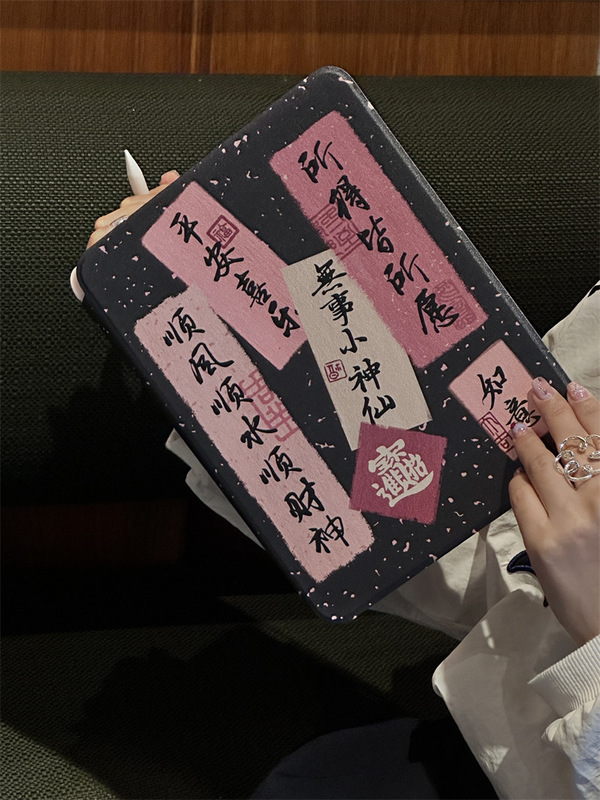 所得皆所愿
平安喜乐
無事小神仙
顺风顺水顺财神
知意
招財進寶